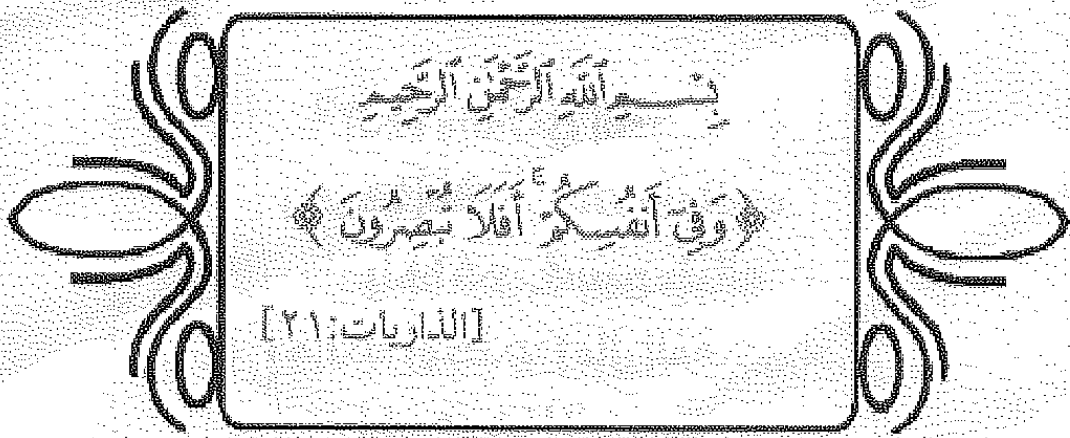 بِسْمِ اللَّهِ الرَّحْمَٰنِ الرَّحِيمِ
﴿وَفِي أَنفُسِكُمْ ۚ أَفَلَا تُبْصِرُونَ﴾
[الذاريات:٢١]